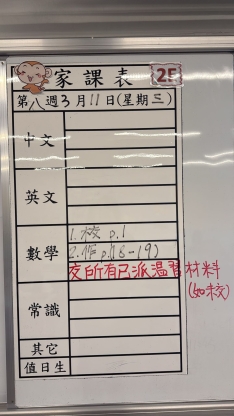 家課表 2F
第八週3月11日(星期三)
中文
英文
數學
1. 校 p.1
2. 作 p.(18-19)
交所有已派溫習材料
(如校)
常識
其它
值日生